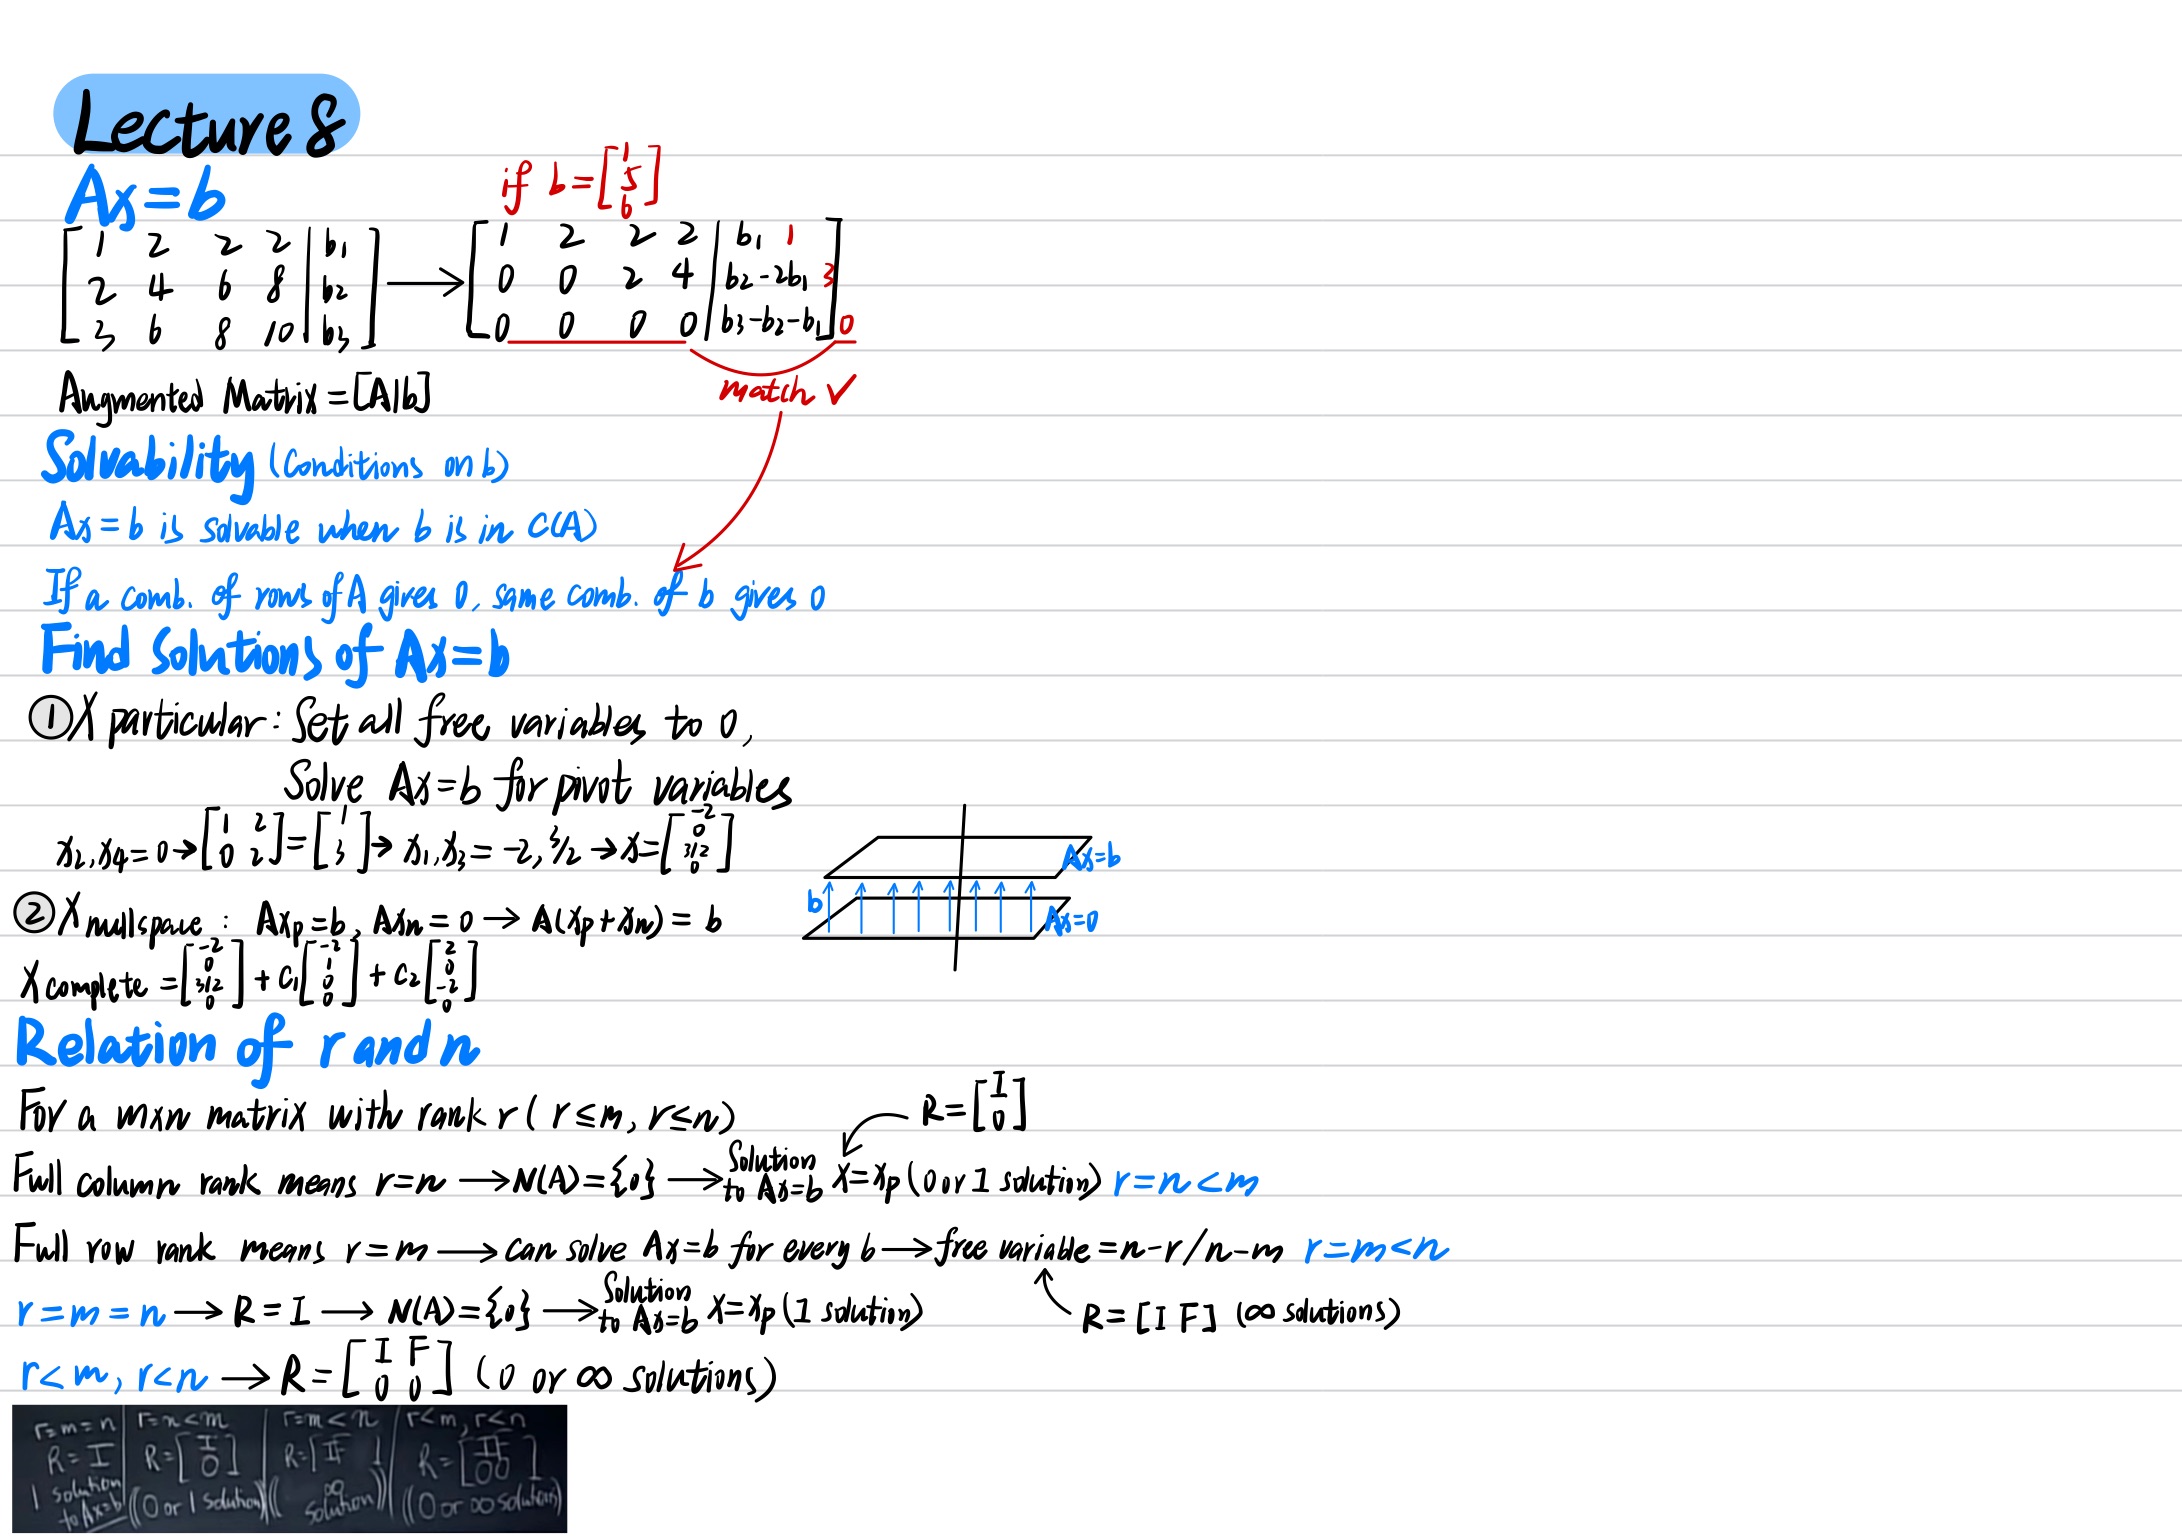 Lecture 8
Ax=b
if b=[1 5 6]
[1 2 2 2 | b1
2 4 6 8 | b2
3 6 8 10 | b3] → [1 2 2 2 | b1 1
0 0 2 4 | b2-2b1 3
0 0 0 0 | b3-b2-b1] 0
match ✓
Augmented Matrix = [A|b]
Solvability (Conditions on b)
Ax=b is solvable when b is in C(A)
If a comb. of rows of A gives 0, same comb. of b gives 0
Find Solutions of Ax=b
① X particular: Set all free variables to 0,
Solve Ax=b for pivot variables
x2, x4 = 0 → [1 2 0 2] = [1 3] → x1, x3 = -2, 3/2 → x = [-2 0 3/2 0]
② X nullspace: Axp=b, Axn=0 → A(xp+xn) = b
X complete = [-2 0 3/2 0] + c1 [-2 1 0 0] + c2 [2 0 -2 0]
Ax=b
b
Ax=0
Relation of r and n
For a m×n matrix with rank r (r≤m, r≤n)
R=[I 0]
Full column rank means r=n → N(A)={0} → Solution to Ax=b X=xp (0 or 1 solution) r=n<m
Full row rank means r=m → can solve Ax=b for every b → free variable = n-r/n-m r=m<n
r=m=n → R=I → N(A)={0} → Solution to Ax=b X=xp (1 solution)
R=[I F] (∞ solutions)
r<m, r<n → R=[I F 0 0] (0 or ∞ solutions)
r=m=n
R=I
1 solution
to Ax=b
r=n<m
R=[I 0]
(0 or 1 solution)
r=m<n
R=[I F]
(∞
solution)
r<m, r<n
R=[I F 0 0]
(0 or ∞ solution)